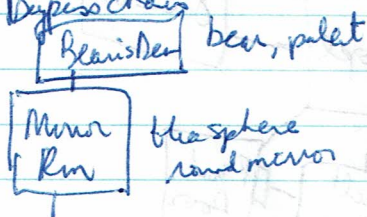 Bypass Chain
Bearis Den bear, palet
Mirror blue sphere
Rm round mirror